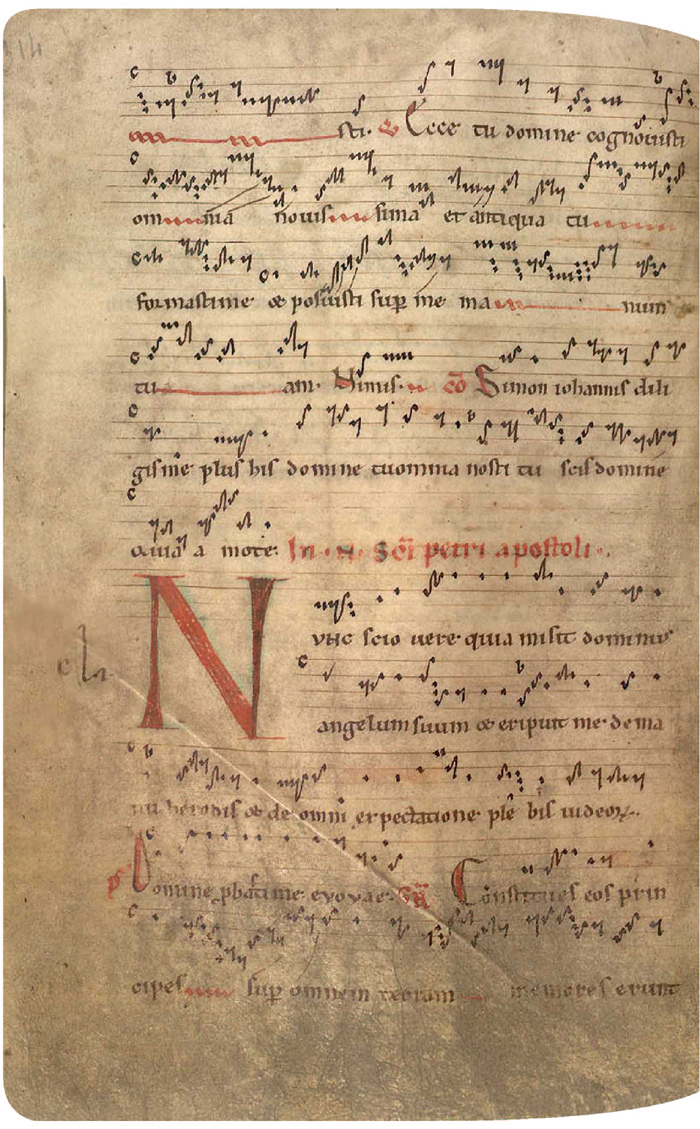 sti. V Ecce tu domine cognouisti
omnia nouissima et antiqua tu
formasti me & posuisti sup me manum
tuam. Nimis. cō Simon iohannis dili
gis me plus his domine tu omnia nosti tu scis domine
quia a mo te. In . N. Sci petri apostoli.
Nunc scio uere quia misit dominus
angelum suum & eripuit me de ma
nu herodis & de omni expectatione plebis iudeoꝝ.
ps Domine pbasti me evovae. GR Constitues eos prin
cipes sup omnem terram memores erunt